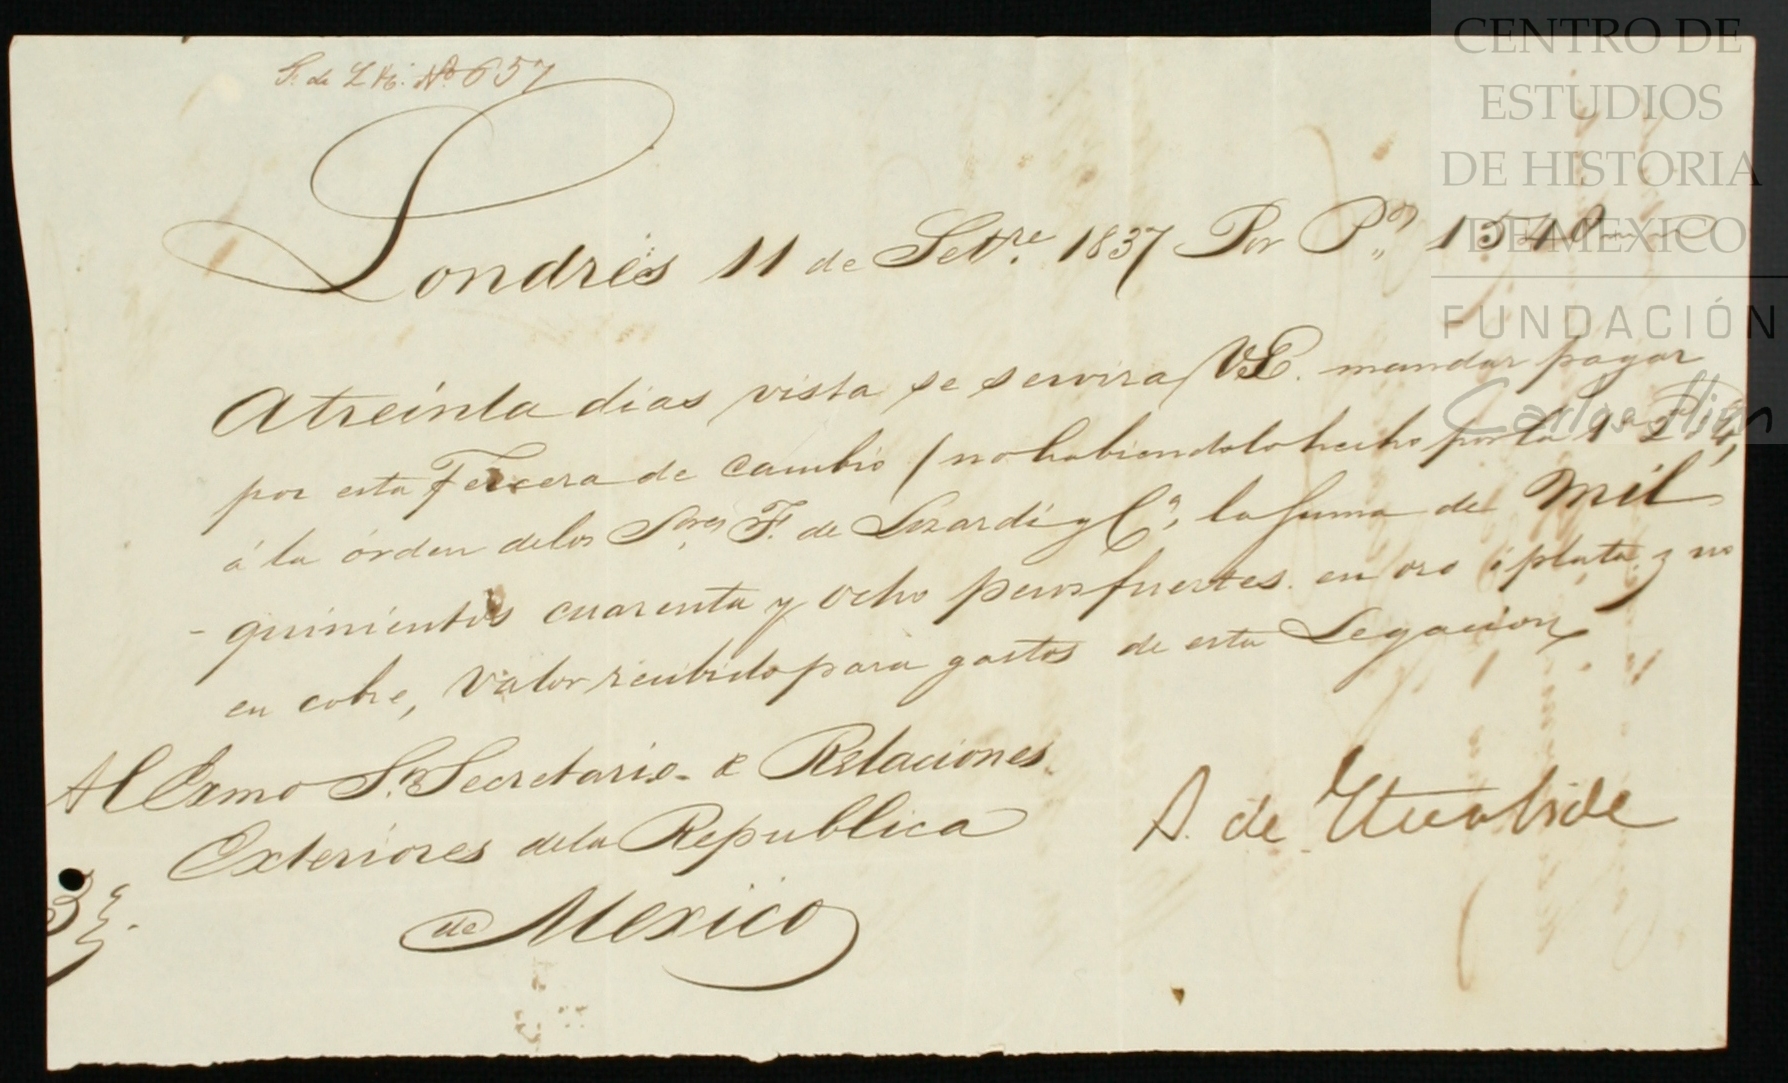 S. de L H. No. 657
Londres 11 de Setre. 1837 Por Ps. 1548
A treinta dias vista se servira V.E. mandar pagar
por esta Tercera de cambio (no habiendolo hecho por la 1a 2a
á la órden de los Sres F. de Lizardi y Ca, la suma de Mil
quinientos cuarenta y ocho pesos fuertes en oro ó plata y no
en cobre, Valor recibido para gastos de esta Legacion
Al Exmo Sr. Secretario de Relaciones
Exteriores de la Republica
de Mexico
A. de Yturbide
3ª
CENTRO DE
ESTUDIOS
DE HISTORIA
DE MEXICO
FUNDACIÓN
Carlos Slim